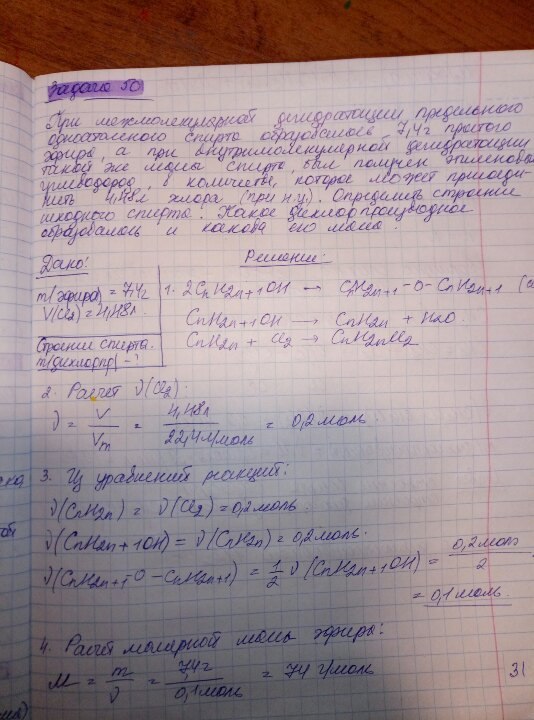 Задача 50
При межмолекулярной дегидратации предельного
одноатомного спирта образовалось 7,4г простого
эфира, а при внутримолекулярной дегидратации
такой же массы спирта был получен этиленовый
углеводород, в количестве, которое может присоеди-
нить 4,48л хлора (при н.у.). Определить строение
исходного спирта. Какое дихлорпроизводное
образовалось и какова его масса.
Дано: Решение:
m(эфира) = 7,4г 1. 2CnH2n+1OH → CnH2n+1-O-CnH2n+1
V(Cl2) = 4,48л. CnH2n+1OH → CnH2n + H2O.
Строение спирта. CnH2n + Cl2 → CnH2nCl2
m(дихлорпр) - ?
2. Расчёт ν(Cl2).
ν = V/Vm = 4,48л/22,4л/моль = 0,2моль
3. Из уравнений реакций:
ν(CnH2n) = ν(Cl2) = 0,2моль.
ν(CnH2n+1OH) = ν(CnH2n) = 0,2моль.
ν(CnH2n+1-O-CnH2n+1) = 1/2 ν(CnH2n+1OH) = 0,2моль/2
= 0,1моль.
4. Расчёт молярной массы эфира:
M = m/ν = 7,4г/0,1моль = 74 г/моль
31